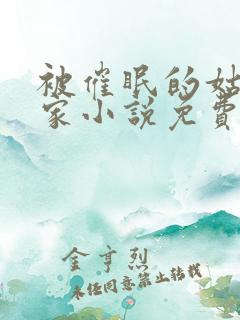 被催眠的姑
家小説免費
金亨烈
未经同意禁止转载